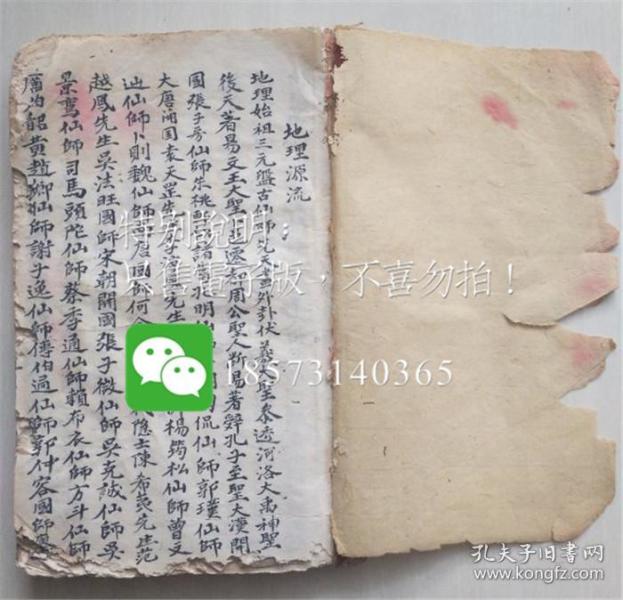 地理源流
地理始祖三元盤古仙師先天
伏羲大聖泰透河洛大禹神聖
後天著易文王大聖
周公聖人斷易著辞孔子至聖大漢開
國張子房仙師朱桃
諸葛孔明仙師
侃仙師郭璞仙師
大唐開國袁天罡先
淳風先生
楊筠松仙師曾文
辿仙師卜則巍仙師
唐國師何
隐士陳希夷先生范
越鳳先生吳法旺國師宋朝開國張子微仙師吳克誠仙師吳
景鸞仙師司馬頭陀仙師蔡季通仙師賴布衣仙師方斗仙師
厲伯韶黃趙卿仙師謝子逸仙師傅伯通仙師鄒仲容國師
特别說明：
只售電子版，不喜勿拍！
18573140365
孔夫子旧書网
www.kongfz.com